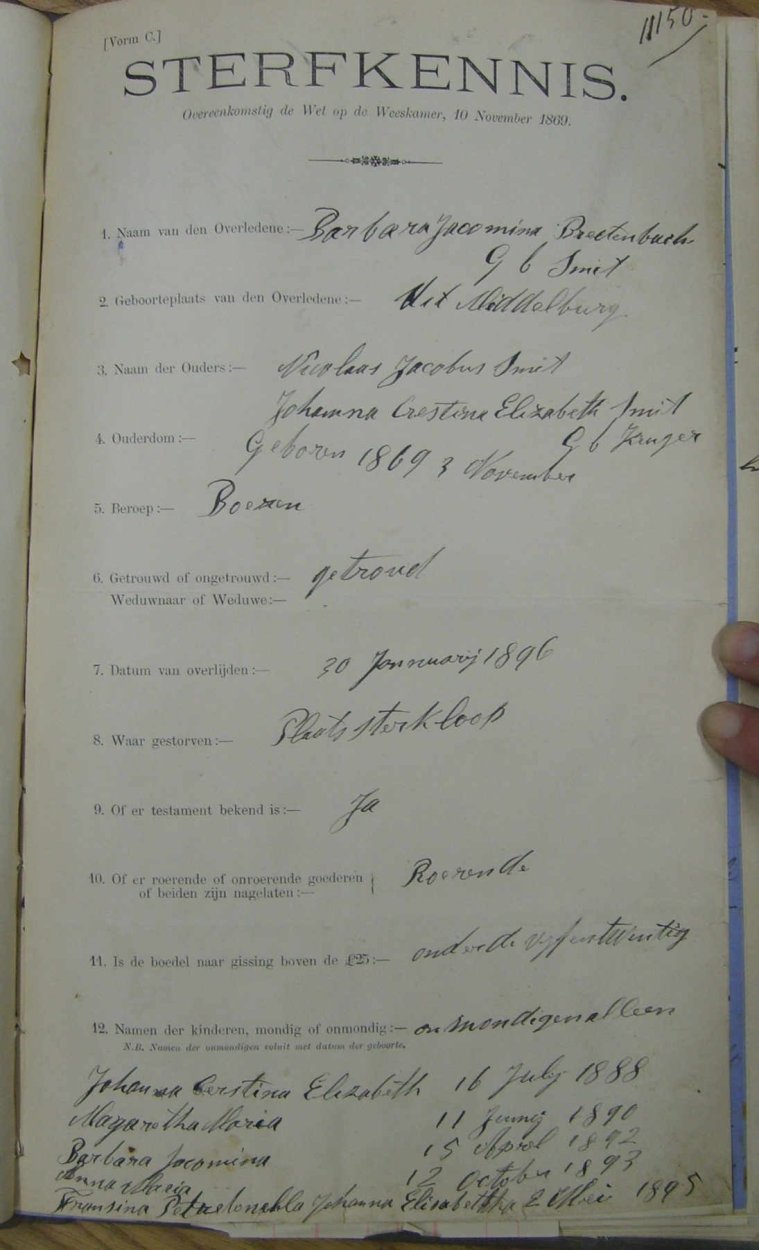 11150.-
[Vorm C.]
STERFKENNIS.
Overeenkomstig de Wet op de Weeskamer, 10 November 1869.
1. Naam van den Overledene:— Barbara Jacomina Breetenbach
G b Smit
2. Geboorteplaats van den Overledene:— Middelburg
3. Naam der Ouders:— Nicolaas Jacobus Smit
Johanna Crestina Elizabeth Smit
G b Kruger
4. Ouderdom:— Geboren 1869 3 November
5. Beroep:— Boeren
6. Getrouwd of ongetrouwd:— getroud
Weduwnaar of Weduwe:—
7. Datum van overlijden:— 30 Jannuarij 1896
8. Waar gestorven:— Plaats sterkloop
9. Of er testament bekend is:— Ja
10. Of er roerende of onroerende goederen
of beiden zijn nagelaten:— Roerende
11. Is de boedel naar gissing boven de £25:— onder de
12. Namen der kinderen, mondig of onmondig:— onmondigen alleen
N.B. Namen der onmondigen voluit met datum der geboorte.
Johanna Elizabeth 16 July 1888
Magaretha Maria 11 Junij 1890
Barbara Jacomina 15 April 1892
Anna Maria 12 October 1893
Fransina Johanna 2 Mei 1895